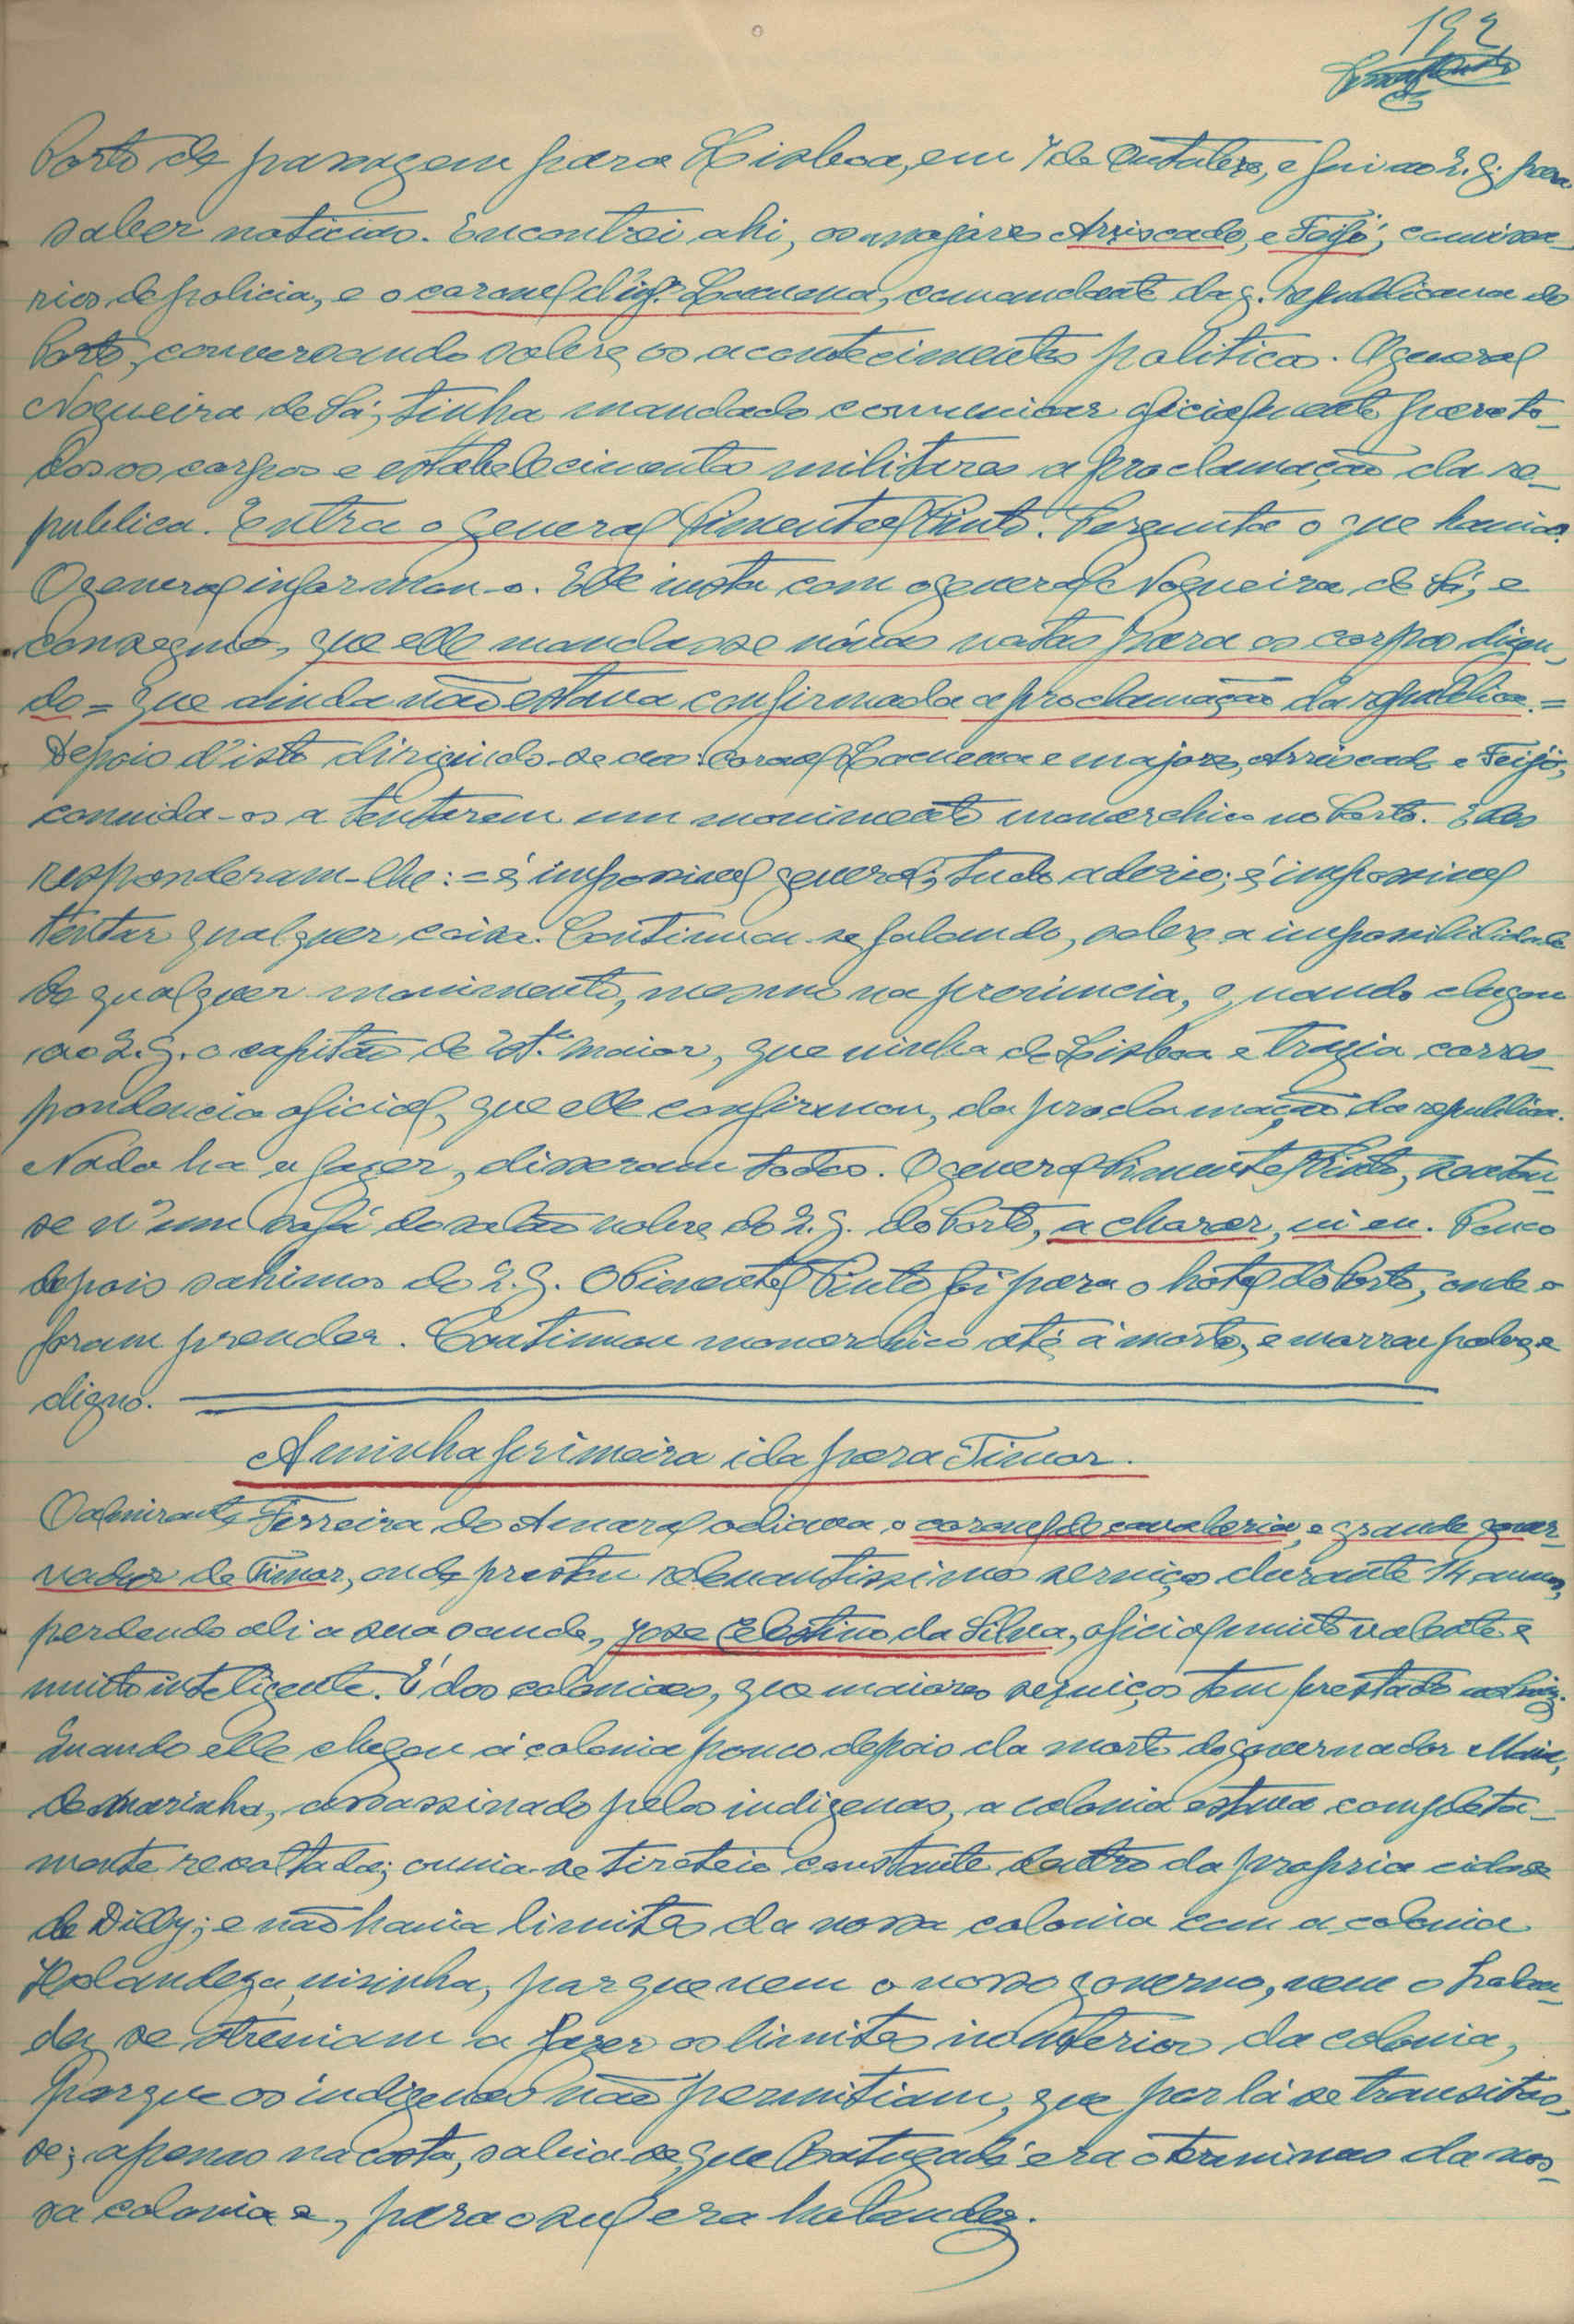 192
Porto de passagem para Lisboa, em 7 de Outubro, e fui ao Q. G. para
saber noticias. Encontrei ahi, os majores Arriscado, e Feijó, comissa-
rios de policia, e o coronel d'ing.ª Lacueva, comandante da g. republicana do
Porto, conversando sobre os acontecimentos politicos. O general
Nogueira de Sá, tinha mandado comunicar oficialmente para to-
dos os corpos e estabelecimentos militares a proclamação da re-
publica. Entra o general Pimentel Pinto. Pergunta o que havia.
O general informou-o. Elle insta com o general Nogueira de Sá, e
conseguio, que elle mandasse nóvas notas para os corpos dizen-
do = que ainda não estava confirmada a proclamação da republica. =
Depois d'isto dirigindo-se aos: coronel Lacueva e majores, Arriscado e Feijó,
convida-os a tentarem um movimento monarchico no Porto. Elles
responderam-lhe: = é impossivel general; tudo aderio; é impossivel
tentar qualquer coisa. Continuou-se falando, sobre a impossibilidade
de qualquer movimento, mesmo na provincia, quando chegou
ao Q. G. o capitão de est.º maior, que vinha de Lisboa e trazia corres-
pondencia oficial, que elle confirmou, da proclamação da republica.
Nada ha a fazer, disseram todos. O general Pimentel Pinto, sentou-
se n'um sofá do salão nobre do Q. G. do Porto, a chorar, vi eu. Pouco
depois sahimos do Q. G. O Pimentel Pinto foi para o hotel do Porto, onde o
foram prender. Continuou monarchico até á morte, e morreu pobre e
digno.
A minha primeira ida para Timor.
O almirante Ferreira do Amaral odiava o coronel de cavalaria, e grande gover-
nador de Timor, onde prestou relevantissimos serviços durante 14 annos,
perdendo ali a sua saude, José Celestino da Silva, oficial muito valente e
muito inteligente. É dos coloniaes, que maiores serviços tem prestado
Quando elle chegou á colonia pouco depois da morte do governador Maia,
de marinha, assassinado pelos indigenas, a colonia estava completa-
mente revoltada; ouvia-se tiroteio constante dentro da propria cidade
de Dilly; e não havia limites da nossa colonia com a colonia
Holandeza visinha, porque nem o nosso governo, nem o holan-
dez se atreviam a fazer os limites no interior da colonia,
porque os indigenas não permitiam, que por lá se transitas-
se; apenas na costa, sabia-se, que Batugadé era o terminus da nos-
sa colonia e, para o sul era holandez.